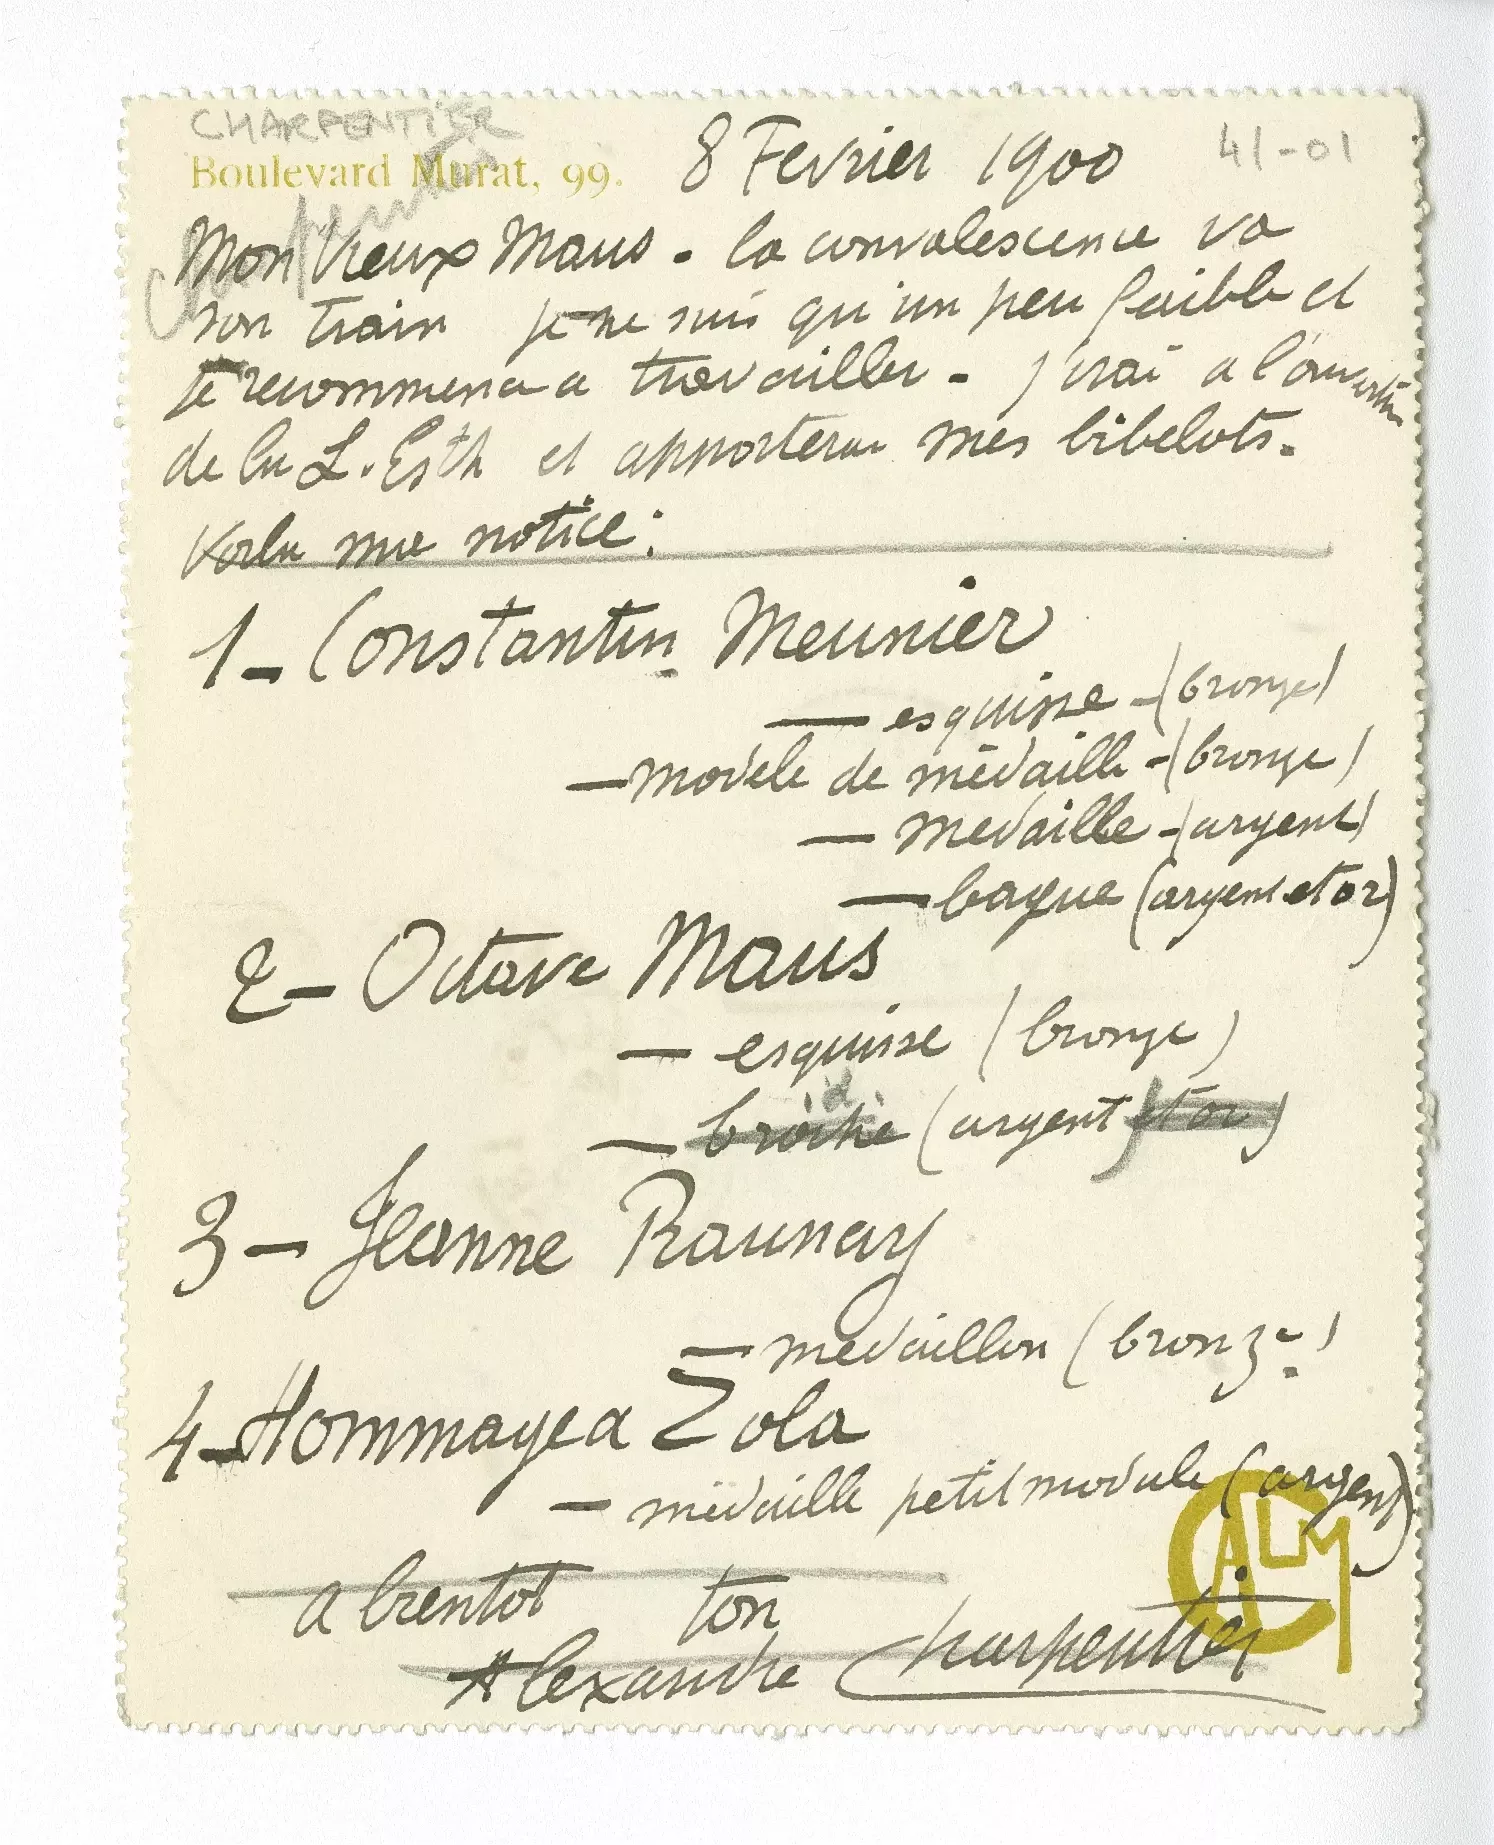 CHARPENTIER
Boulevard Murat, 99. 8 Fevrier 1900 41-01
Mon Vieux Maus - la convalescence va
son train je ne suis qu'un peu faible et
je recommence a travailler - j'irai a l'ouverture
de la L. Esth et apporterai mes bibelots.
Voila ma notice :
1 - Constantin Meunier
— esquisse - (bronze)
— modele de médaille - (bronze)
— medaille - (argent)
— bague (argent et or)
2 - Octave Maus
— esquisse (bronze)
— broche (argent) et or)
3 - Jeanne Raunay
— medaillon (bronze)
4 - Hommage a Zola
— médaille petit module (argent)
a bientot ton
Alexandre Charpentier